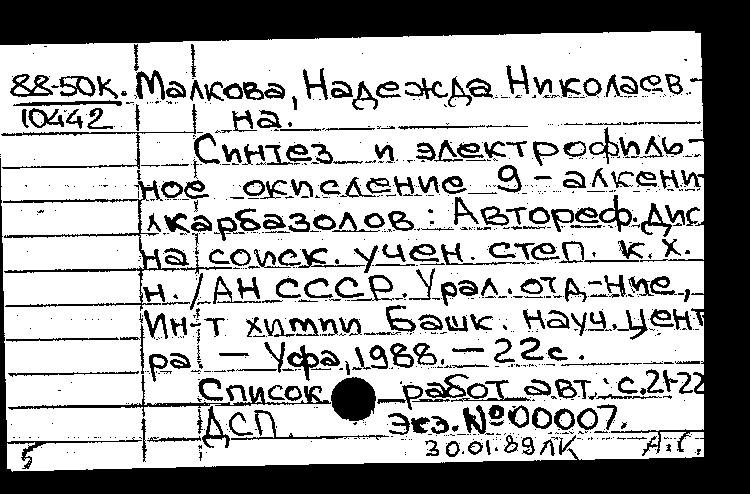 88-50К. Малкова, Надежда Николаев-
10442 на.
Синтез и электрофиль-
ное окисление 9-алкени
лкарбазолов: Автореф. дис
на соиск. учен. степ. к. х.
н. / АН СССР. Урал. отд-ние,
Ин-т химии Башк. науч. цент
ра. - Уфа, 1988. - 22с.
Список работ авт.: с. 21-22
ДСП. Экз. №00007.
5 30.01.89 ЛК А.С.